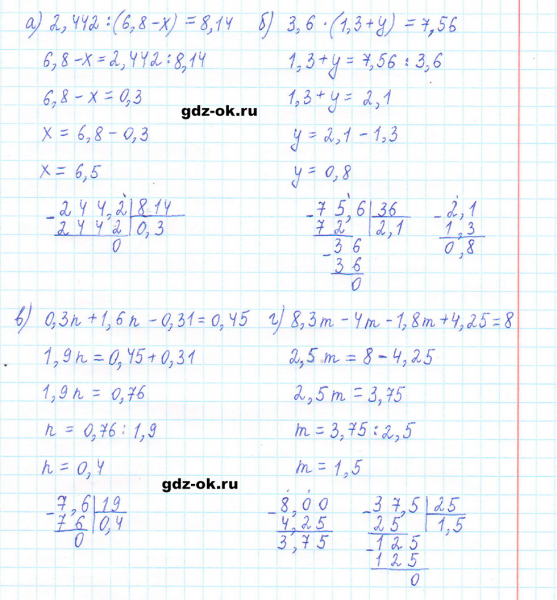 а) 2,442 : (6,8 − x) = 8,14
6,8 − x = 2,442 : 8,14
6,8 − x = 0,3
x = 6,8 − 0,3
x = 6,5
−244,2 | 8,14
2442 | 0,3
0
б) 3,6 · (1,3 + y) = 7,56
1,3 + y = 7,56 : 3,6
1,3 + y = 2,1
y = 2,1 − 1,3
y = 0,8
−75,6 | 36
72 | 2,1
−36
36
0
−2,1
1,3
0,8
gdz-ok.ru
в) 0,3n + 1,6n − 0,31 = 0,45
1,9n = 0,45 + 0,31
1,9n = 0,76
n = 0,76 : 1,9
n = 0,4
−7,6 | 19
76 | 0,4
0
г) 8,3m − 4m − 1,8m + 4,25 = 8
2,5m = 8 − 4,25
2,5m = 3,75
m = 3,75 : 2,5
m = 1,5
−8,00
4,25
3,75
−37,5 | 25
25 | 1,5
−125
125
0
gdz-ok.ru